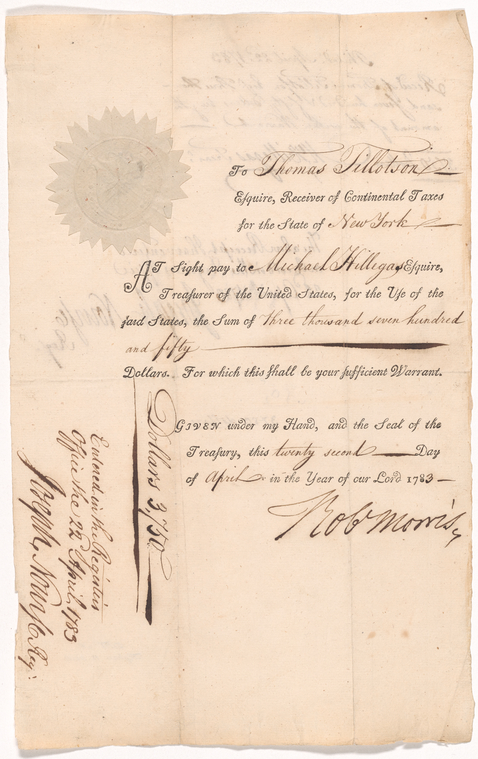 To Thomas Tillotson
Esquire, Receiver of Continental Taxes
for the State of New York
AT Sight pay to Michael Hillegas Esquire,
Treasurer of the United States, for the Use of the
said States, the Sum of Three thousand seven hundred
and fifty
Dollars. For which this shall be your sufficient Warrant.
GIVEN under my Hand, and the Seal of the
Treasury, this twenty second Day
of April in the Year of our Lord 1783
Robt Morris
Dollars 3,750
Entered in the Registers
Office the 22 April 1783
Joseph Nourse Reg.